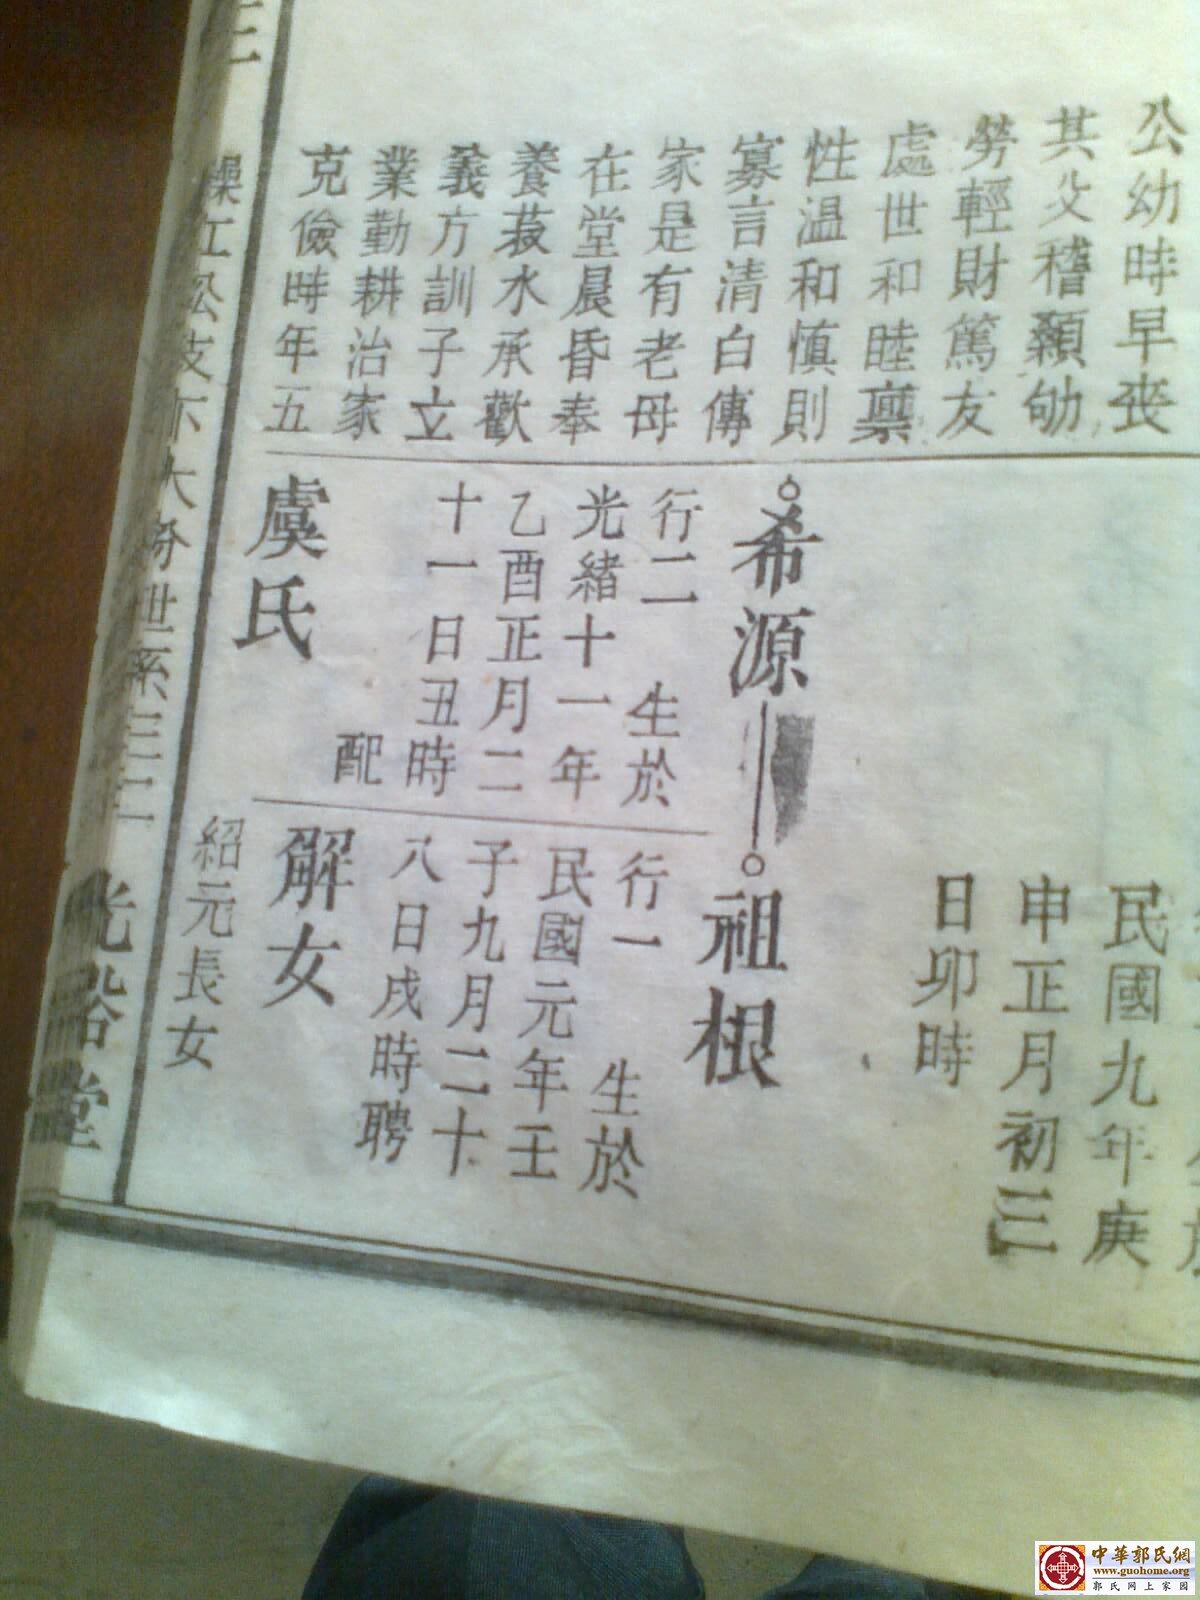 公幼時早丧
其父稽顙劬
勞輕財篤友
處世和睦禀
性温和慎則
寡言清白傳
家是有老母
在堂晨昏奉
養菽水承歡
義方訓子立
業勤耕治家
克儉時年五
希源
行二 生於
光緒十一年
乙酉正月二
十一日丑時
配
虞氏
民國九年庚
申正月初三
日卯時
祖根
行一 生於
民國元年壬
子九月二十
八日戌時聘
解女
紹元長女
世系
堂
中華郭氏網
www.guohome.org
郭氏网上家园